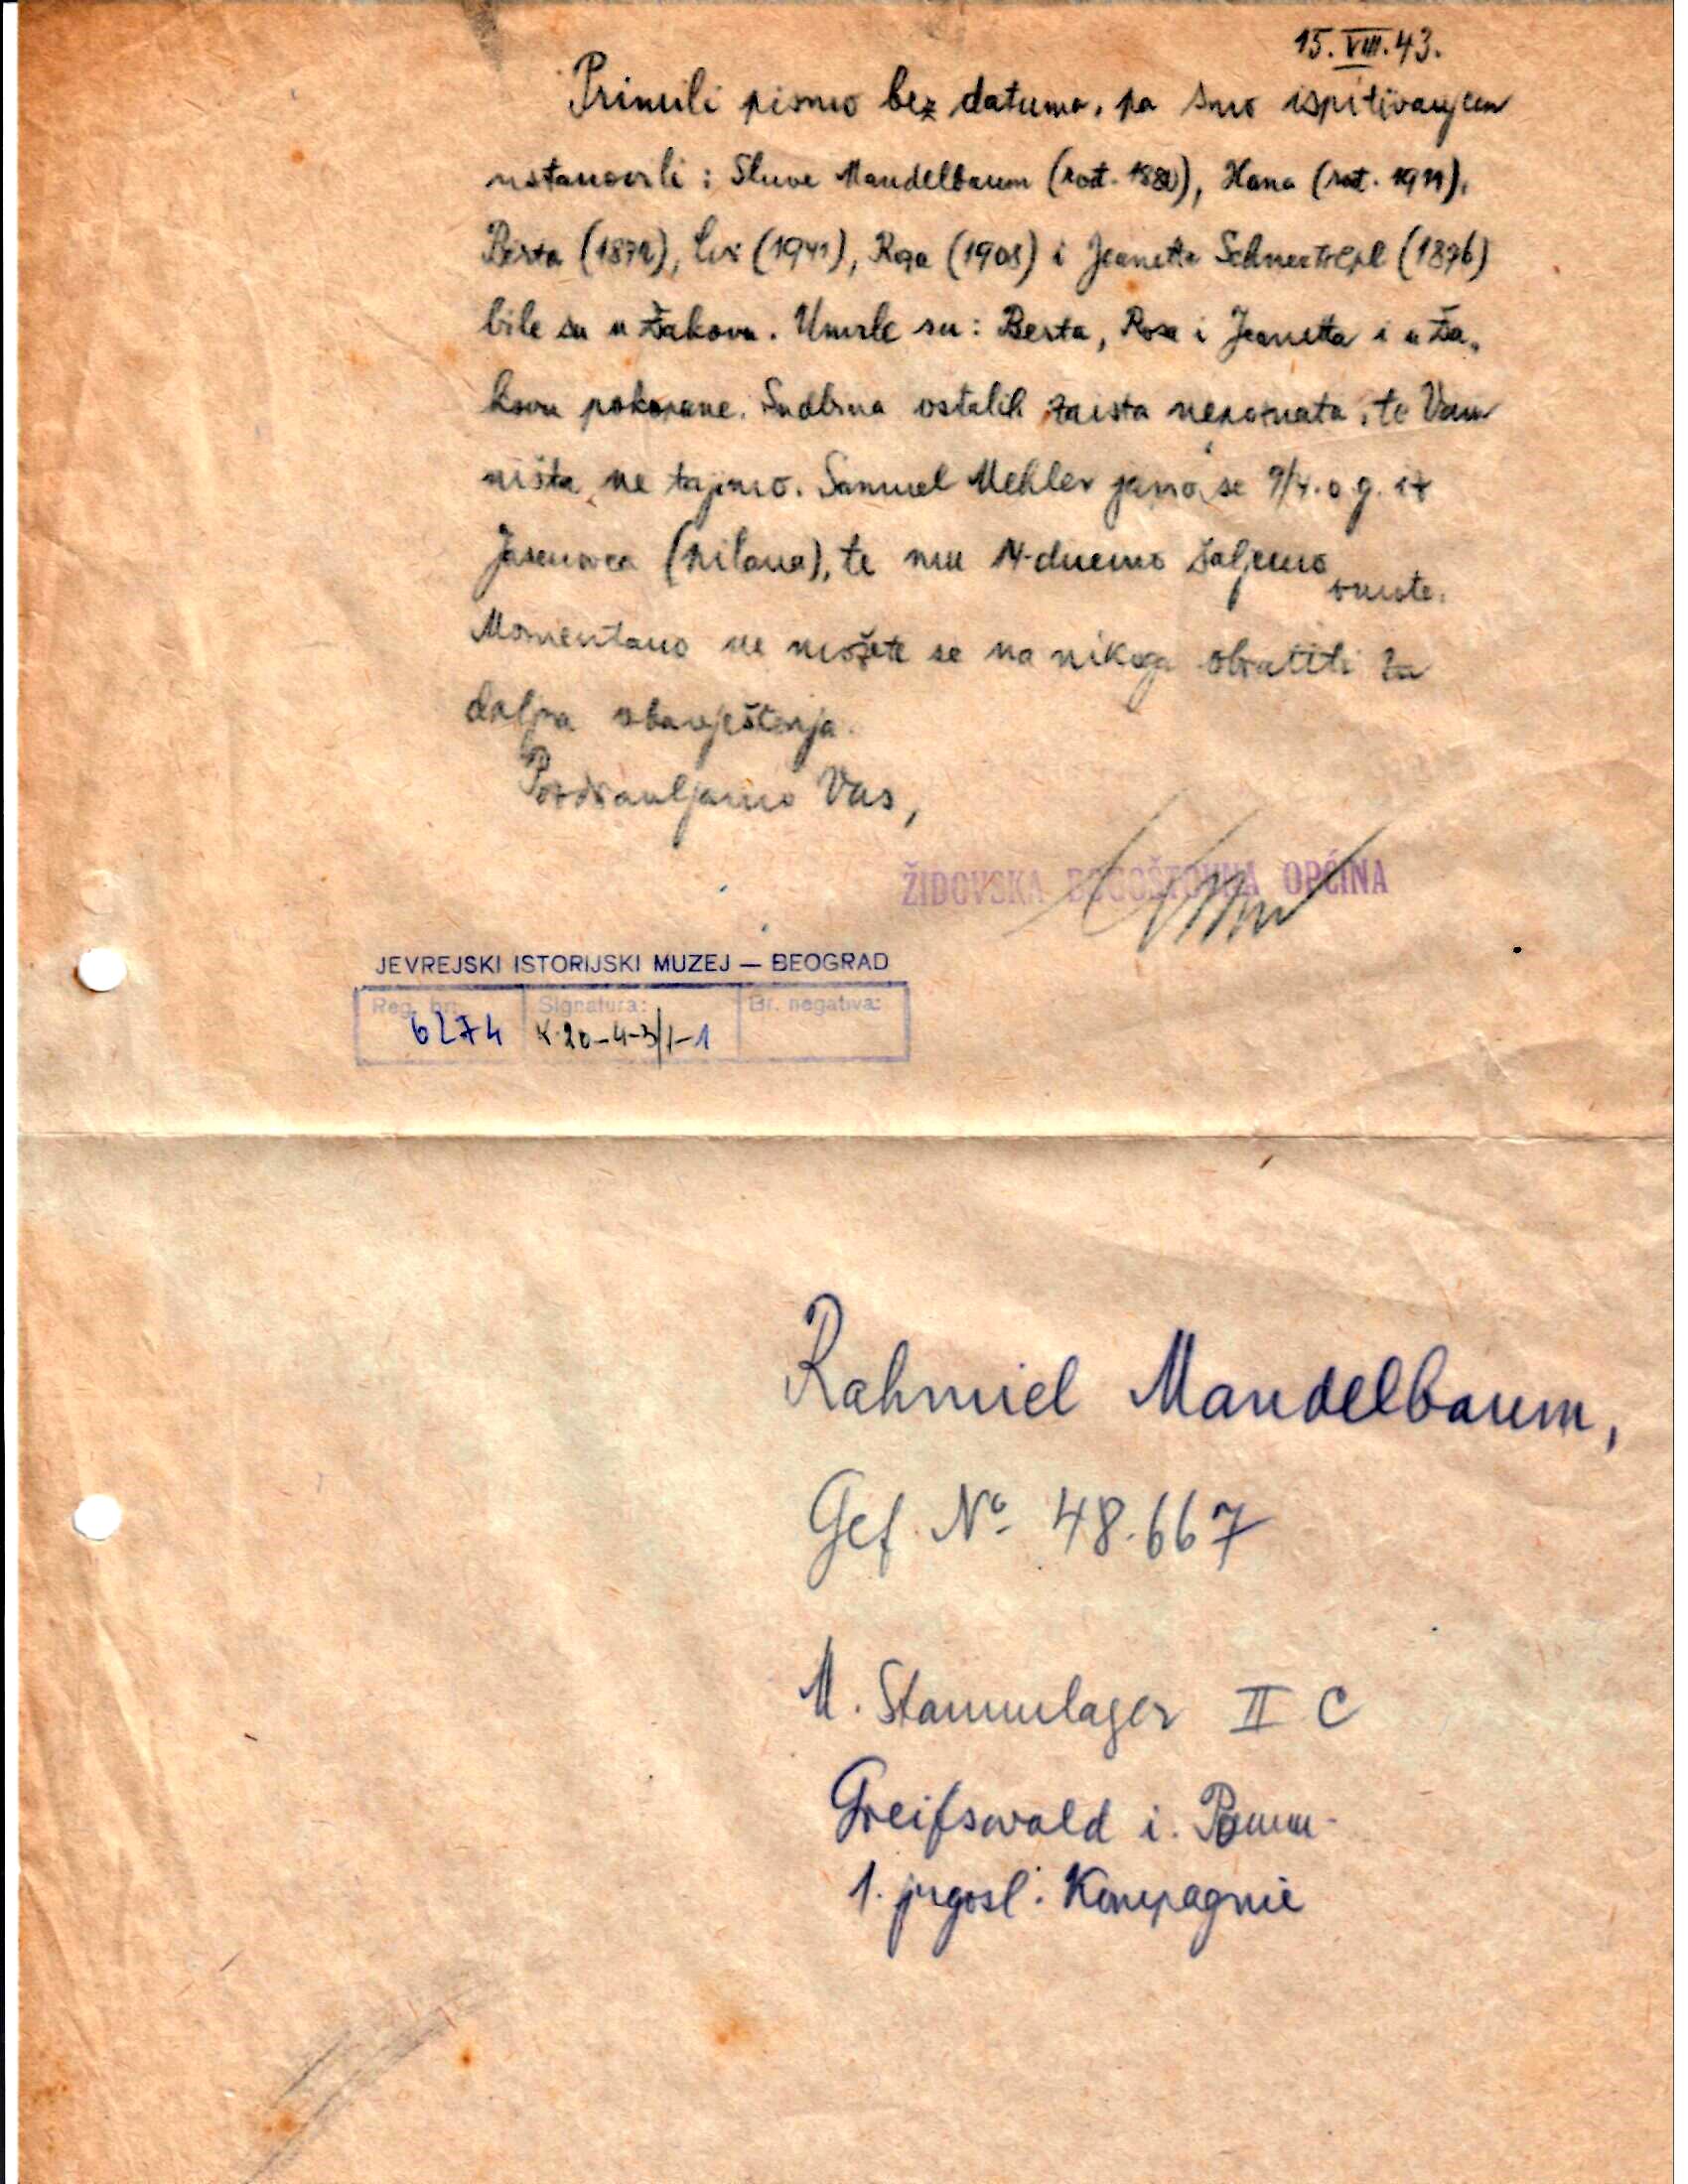 15.VIII.43.
Primili pismo bez datuma, pa smo ispitivanjem
ustanovili: Sluve Mandelbaum (rođ. 1880), Hana (rođ. 1911),
Berta (1872), Evi (1941), Roza (1908) i Jeanetta (1876)
bile su u Đakovu. Umrle su: Berta, Rosa i Jeanetta i u Đa-
kovu pokopane. Sudbina ostalih zaista nepoznata, te Vam
ništa ne tajimo. Samuel Mehler javio se 9/4. o.g. iz
Jasenovca (Kilana), te mu 14-dnevno šaljemo
omote.
Momentano ne možete se na nikoga obratiti za
dalja obavještenja.
Pozdravljamo Vas,
ŽIDOVSKA BOGOŠTOVNA OPĆINA
JEVREJSKI ISTORIJSKI MUZEJ — BEOGRAD
Reg. br: Signatura: Br. negativa:
6274 K.20-4-3/1-1
Rahmiel Mandelbaum,
Gef. No 48.667
M. Stammlager II C
Greifswald i. Pomm.
1. jugosl. Kompagnie